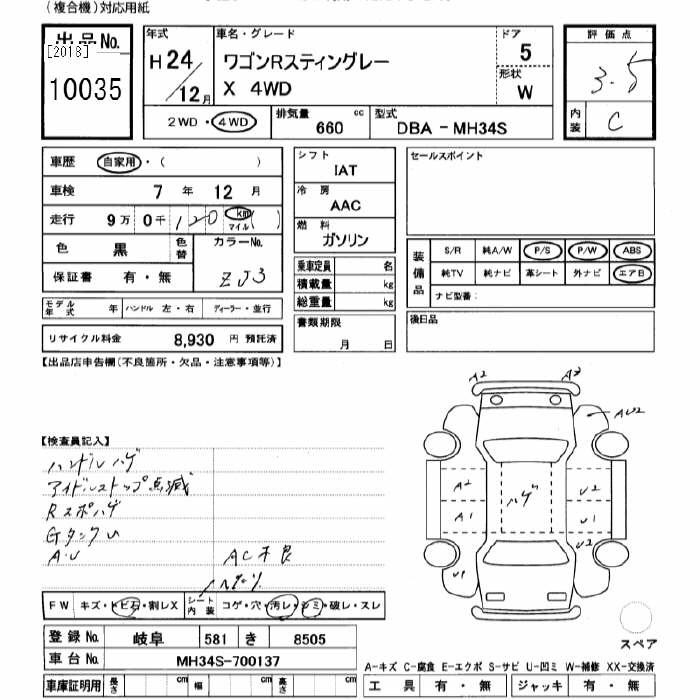 (複合機)対応用紙
出品No.
[2018]
10035
年式
H24/12月
車名・グレード
ワゴンRスティングレー
X 4WD
ドア 5
形状 W
評価点
3.5
内装 C
2WD・4WD
排気量 660 cc
型式 DBA-MH34S
車歴 自家用・( )
車検 7年 12月
走行 9万 0千 120 km マイル ( )
色 黒 色替 カラーNo. ZJ3
保証書 有・無
モデル年式 年 ハンドル 左・右 ディーラー・並行
リサイクル料金 8,930 円 預託済
シフト
IAT
冷房
AAC
燃料
ガソリン
乗車定員 名
積載量 kg
総重量 kg
書類期限
月 日
セールスポイント
装備品
S/R 純A/W P/S P/W ABS
純TV 純ナビ 革シート 外ナビ エアB
ナビ型番:
後日品
【出品店申告欄(不良箇所・欠品・注意事項等)】
【検査員記入】
ハンドルハゲ
アイドルストップ点滅
Rスポハゲ
GタンクU
A.U
AC不良
A2 A3
AU2
A2 ハゲ U2
A1 U1
U2
U1
FW キズ・トビ石・割レX シート内装 コゲ・穴・汚レ・シミ・破レ・スレ
登録No. 岐阜 581 き 8505
車台No. MH34S-700137
車庫証明用 長さ cm 幅 cm 高さ cm
スペア
A-キズ C-腐食 E-エクボ S-サビ U-凹ミ W-補修 XX-交換済
工具 有・無 ジャッキ 有・無